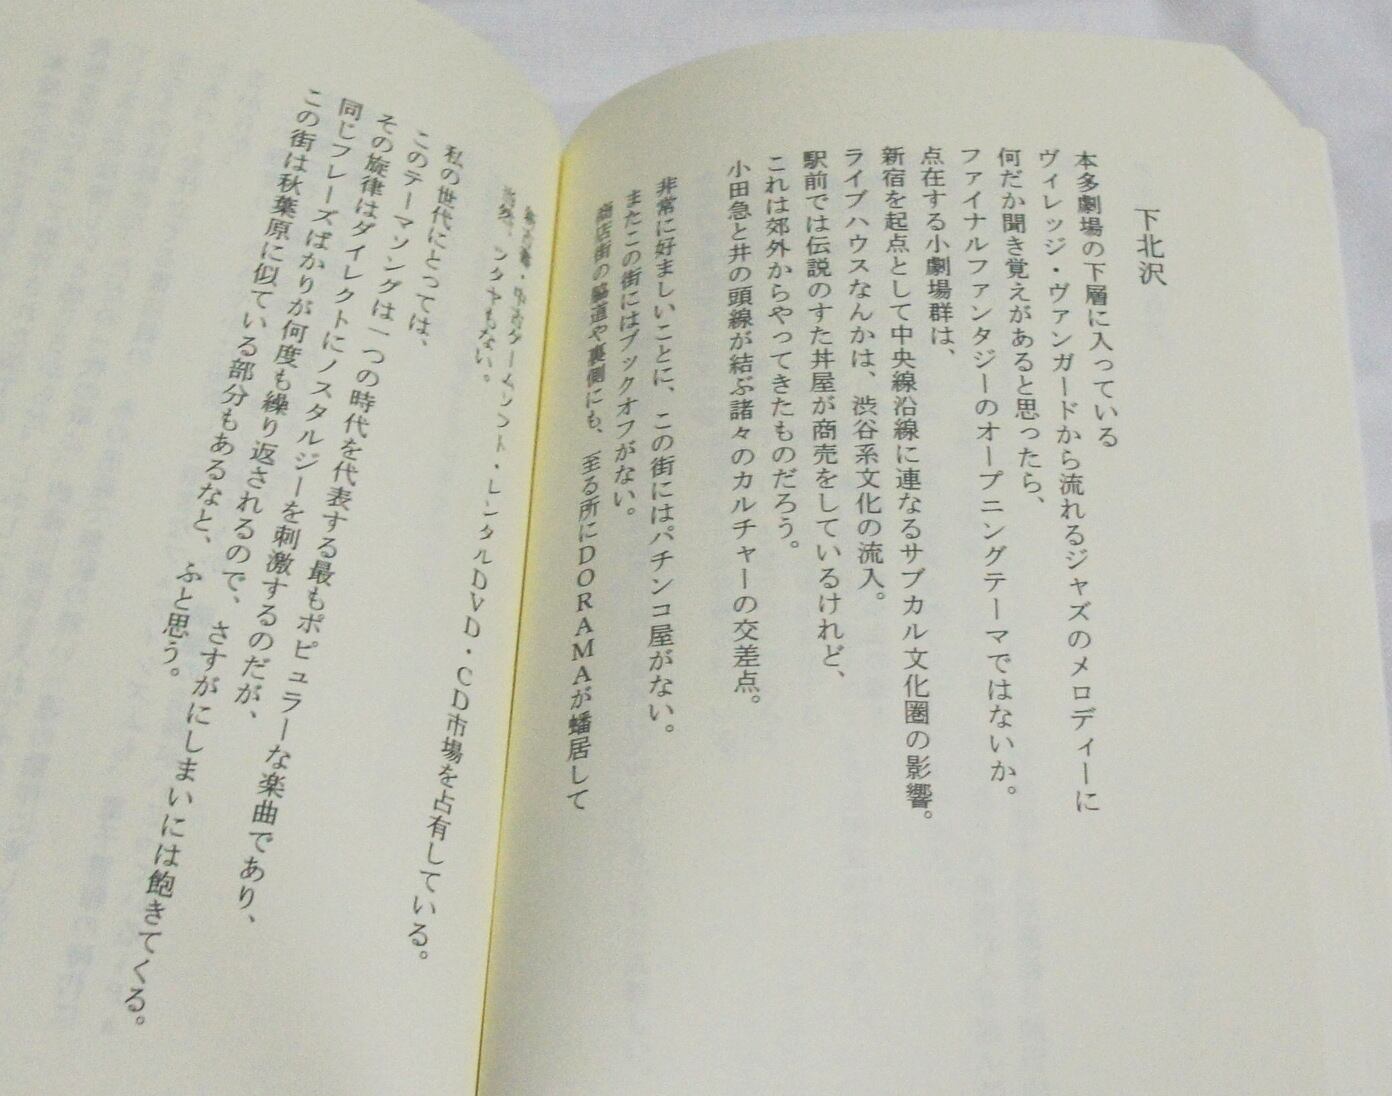 下北沢
本多劇場の下層に入っている
ヴィレッジ・ヴァンガードから流れるジャズのメロディーに
何だか聞き覚えがあると思ったら、
ファイナルファンタジーのオープニングテーマではないか。
点在する小劇場群は、
新宿を起点として中央線沿線に連なるサブカル文化圏の影響。
ライブハウスなんかは、渋谷系文化の流入。
駅前では伝説のすた丼屋が商売をしているけれど、
これは郊外からやってきたものだろう。
小田急と井の頭線が結ぶ諸々のカルチャーの交差点。
非常に好ましいことに、この街にはパチンコ屋がない。
またこの街にはブックオフがない。
商店街の脇道や裏側にも、至る所にDORAMAが蟠居して
・中古ゲームソフト・レンタルDVD・CD市場を占有している。
もない。
私の世代にとっては、
このテーマソングは一つの時代を代表する最もポピュラーな楽曲であり、
その旋律はダイレクトにノスタルジーを刺激するのだが、
同じフレーズばかりが何度も繰り返されるので、さすがにしまいには飽きてくる。
この街は秋葉原に似ている部分もあるなと、ふと思う。